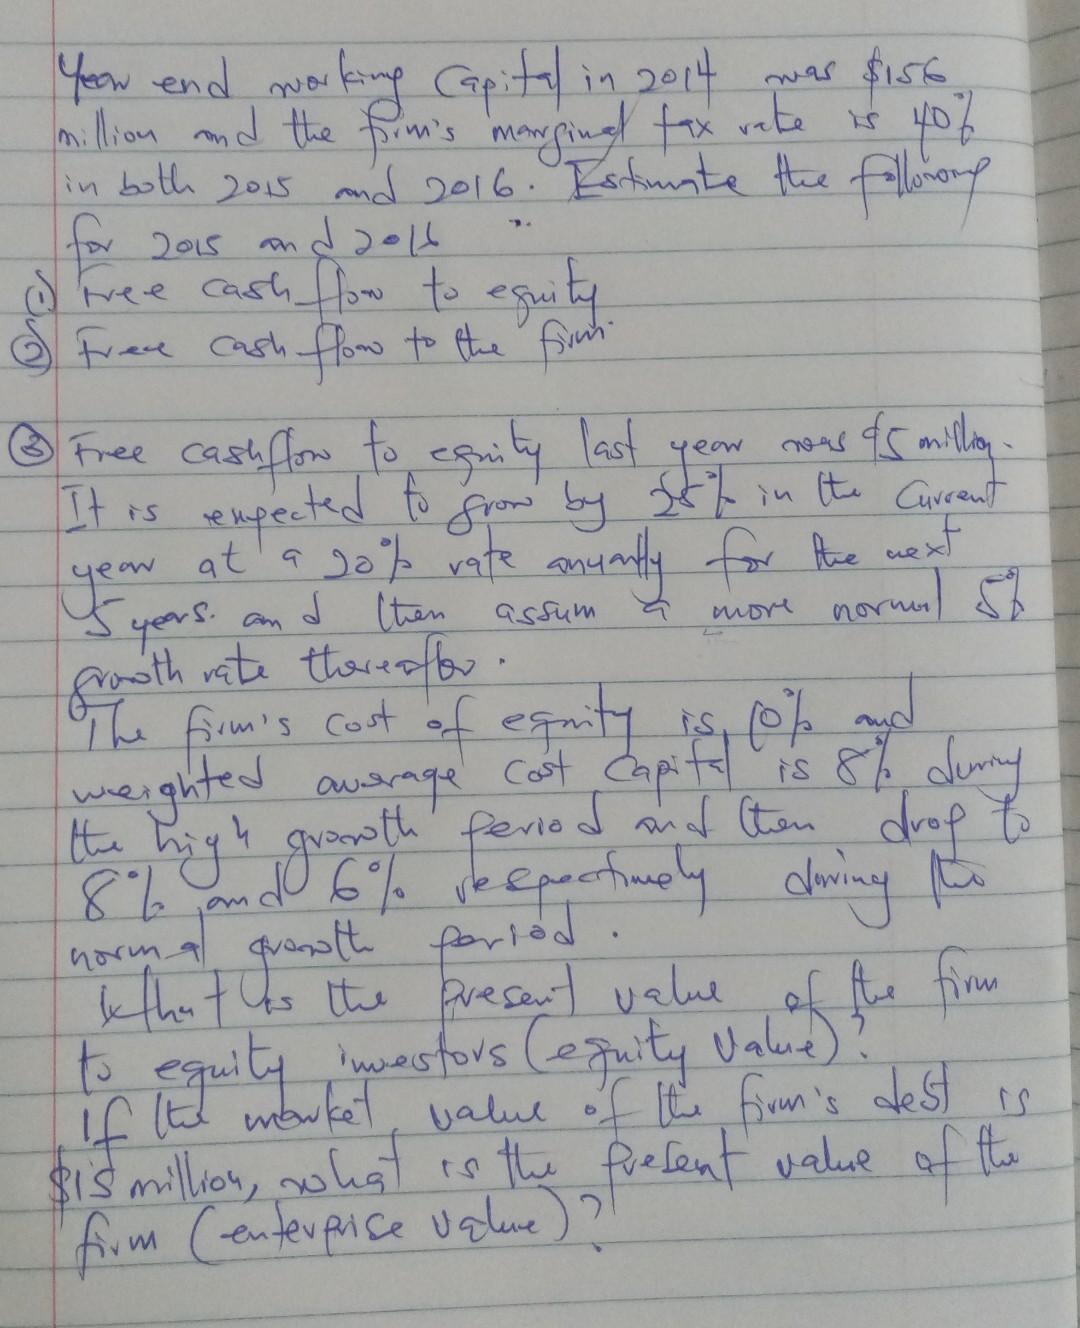 Year end working Capital in 2014 was $156
million and the firm's marginal tax rate is 40%
in both 2015 and 2016. Estimate the following
for 2015 and 2016
① Free cash flow to equity
② Free cash flow to the firm.
③ Free cashflow to equity last year was $5 million.
It is expected to grow by 25% in the Current
year at a 20% rate annually for the next
5 years. and then assum a more normal 5%
growth rate thereafter.
The firm's cost of equity is 10% and
weighted average cost Capital is 8% during
the high growth period and then drop to
8% and 6% respectively during the
normal growth period.
What is the present value of the firm
to equity investors (equity Value)?
If the market value of the firm's debt is
$15 million, what is the present value of the
firm (enterprise value)?